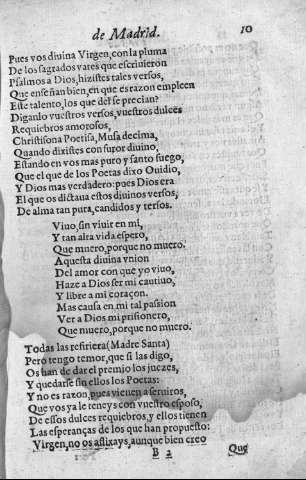 de Madrid. 10
Pues vos diuina Virgen, con la pluma
De los sagrados vates que escriuieron
Psalmos a Dios, hizistes tales versos,
Que enseñan bien, en que es razon empleen
Este talento, los que del se precian?
Diganlo vuestros versos, vuestros dulces
Requiebros amorosos,
Christisona Poetisa, Musa decima,
Quando dixistes con furor diuino,
Estando en vos mas puro y santo fuego,
Que el que de los Poetas dixo Ouidio,
Y Dios mas verdadero: pues Dios era
El que os dictaua estos diuinos versos,
De alma tan pura, candidos y tersos.
Viuo, sin viuir en mi,
Y tan alta vida espero,
Que muero, porque no muero.
Aquesta diuina vnion
Del amor con que yo viuo,
Haze a Dios ser mi cautiuo,
Y libre a mi coraçon.
Mas causa en mi tal passion
Ver a Dios mi prisionero,
Que muero, porque no muero.
Todas las refiriera (Madre Santa)
Pero tengo temor, que si las digo,
Os han de dar el premio los juezes,
Y quedarse sin ellos los Poetas:
Y no es razon, pues vienen a seruiros,
Que vos ya le teneys con vuestro esposo,
De essos dulces requiebros, y ellos tienen
Las esperanças de los que han propuesto:
Virgen, no os aflixays, aunque bien creo
B 2 Que